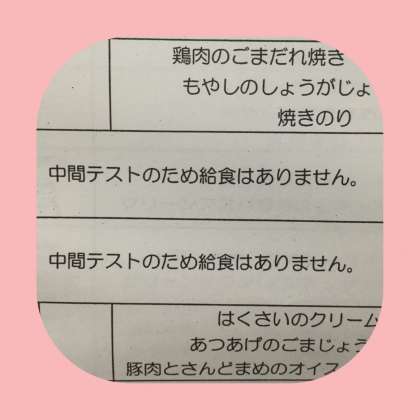 鶏肉のごまだれ焼き
もやしのしょうがじょ
焼きのり
中間テストのため給食はありません。
中間テストのため給食はありません。
はくさいのクリーム
あつあげのごまじょう
豚肉とさんどまめのオイス